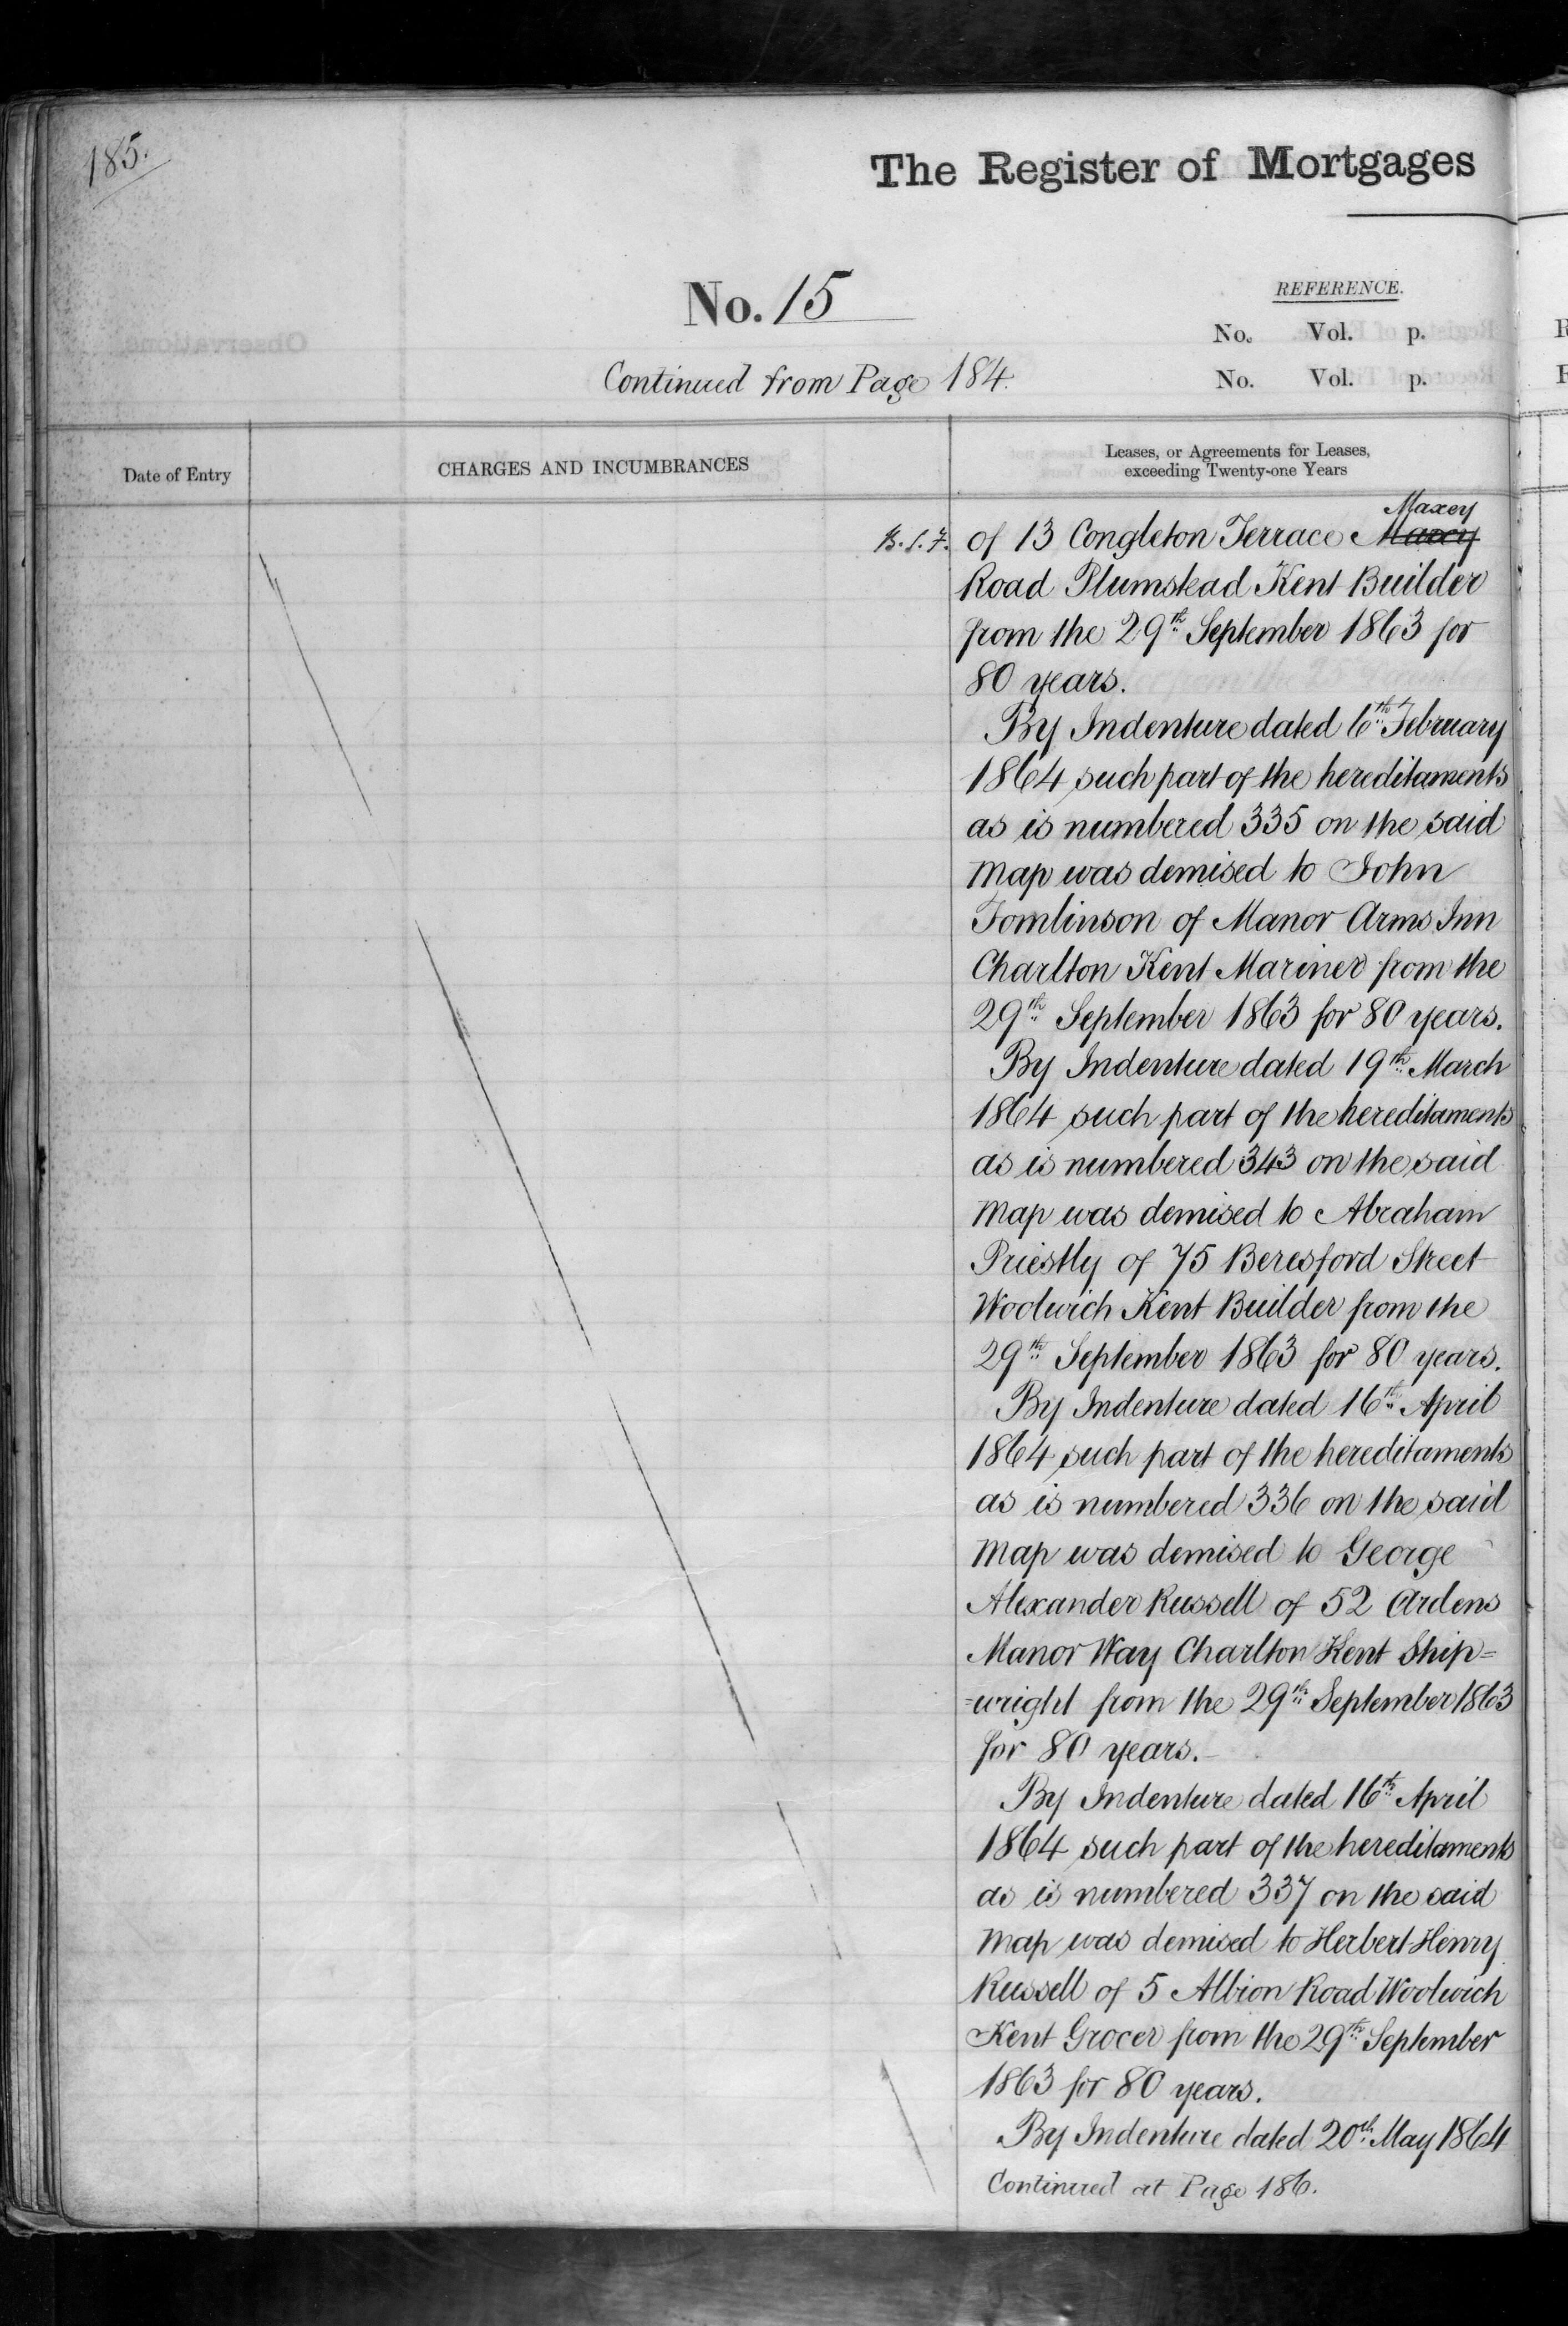 185.
The Register of Mortgages
No. 15
REFERENCE.
No. Vol. p.
Continued from Page 184.
No. Vol. p.
Date of Entry
CHARGES AND INCUMBRANCES
Leases, or Agreements for Leases,
exceeding Twenty-one Years
Maxey
of 13 Congleton Terrace Maxcy
Road Plumstead Kent Builder
from the 29th September 1863 for
80 years.
By Indenture dated 6th February
1864 such part of the hereditaments
as is numbered 335 on the said
map was demised to John
Tomlinson of Manor Arms Inn
Charlton Kent Mariner from the
29th September 1863 for 80 years.
By Indenture dated 19th March
1864 such part of the hereditaments
as is numbered 343 on the said
map was demised to Abraham
Priestly of 75 Beresford Street
Woolwich Kent Builder from the
29th September 1863 for 80 years.
By Indenture dated 16th April
1864 such part of the hereditaments
as is numbered 336 on the said
map was demised to George
Alexander Russell of 52 Ardens
Manor Way Charlton Kent Ship=
=wright from the 29th September 1863
for 80 years.-
By Indenture dated 16th April
1864 such part of the hereditaments
as is numbered 337 on the said
map was demised to Herbert Henry
Russell of 5 Albion Road Woolwich
Kent Grocer from the 29th September
1863 for 80 years.
By Indenture dated 20th May 1864
Continued at Page 186.